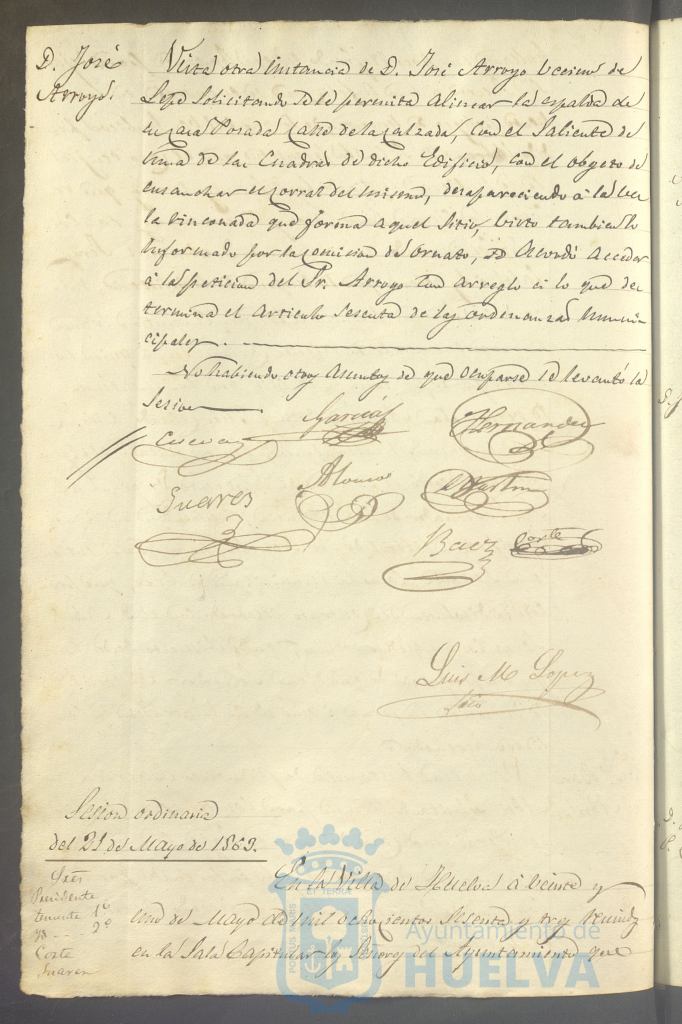 D. José
Arroyo.
Vista otra instancia de D. José Arroyo vecino de
Lepe solicitando se le permita alinear la espalda de
su casa Posada calle de la calzada, con el saliente de
una de las Cuadras de dicho Edificio, con el objeto de
ensanchar el corral del mismo, desapareciendo á la vez
la rinconada que forma aquel sitio, visto tambien lo
informado por la comision de ornato, se acordó acceder
á la peticion del Sr. Arroyo con arreglo á lo que de
termina el articulo sesenta de las ordenanzas muni-
cipales.
No habiendo otros asuntos de que ocuparse se levantó la
sesion
Cuevas Garcia Hernandez
Suares Alonso Martin
Baez Corte
Luis M Lopez
Srio
Sesion ordinaria
del 21 de Mayo de 1863.
Sres
Presidente
teniente 1º
Yd -- 2º
Corte
Suares
En la Villa de Huelva á veinte y
uno de Mayo de mil ochocientos sesenta y tres reunidos
en la Sala Capitular los Señores del Ayuntamiento que
Ayuntamiento de
HUELVA